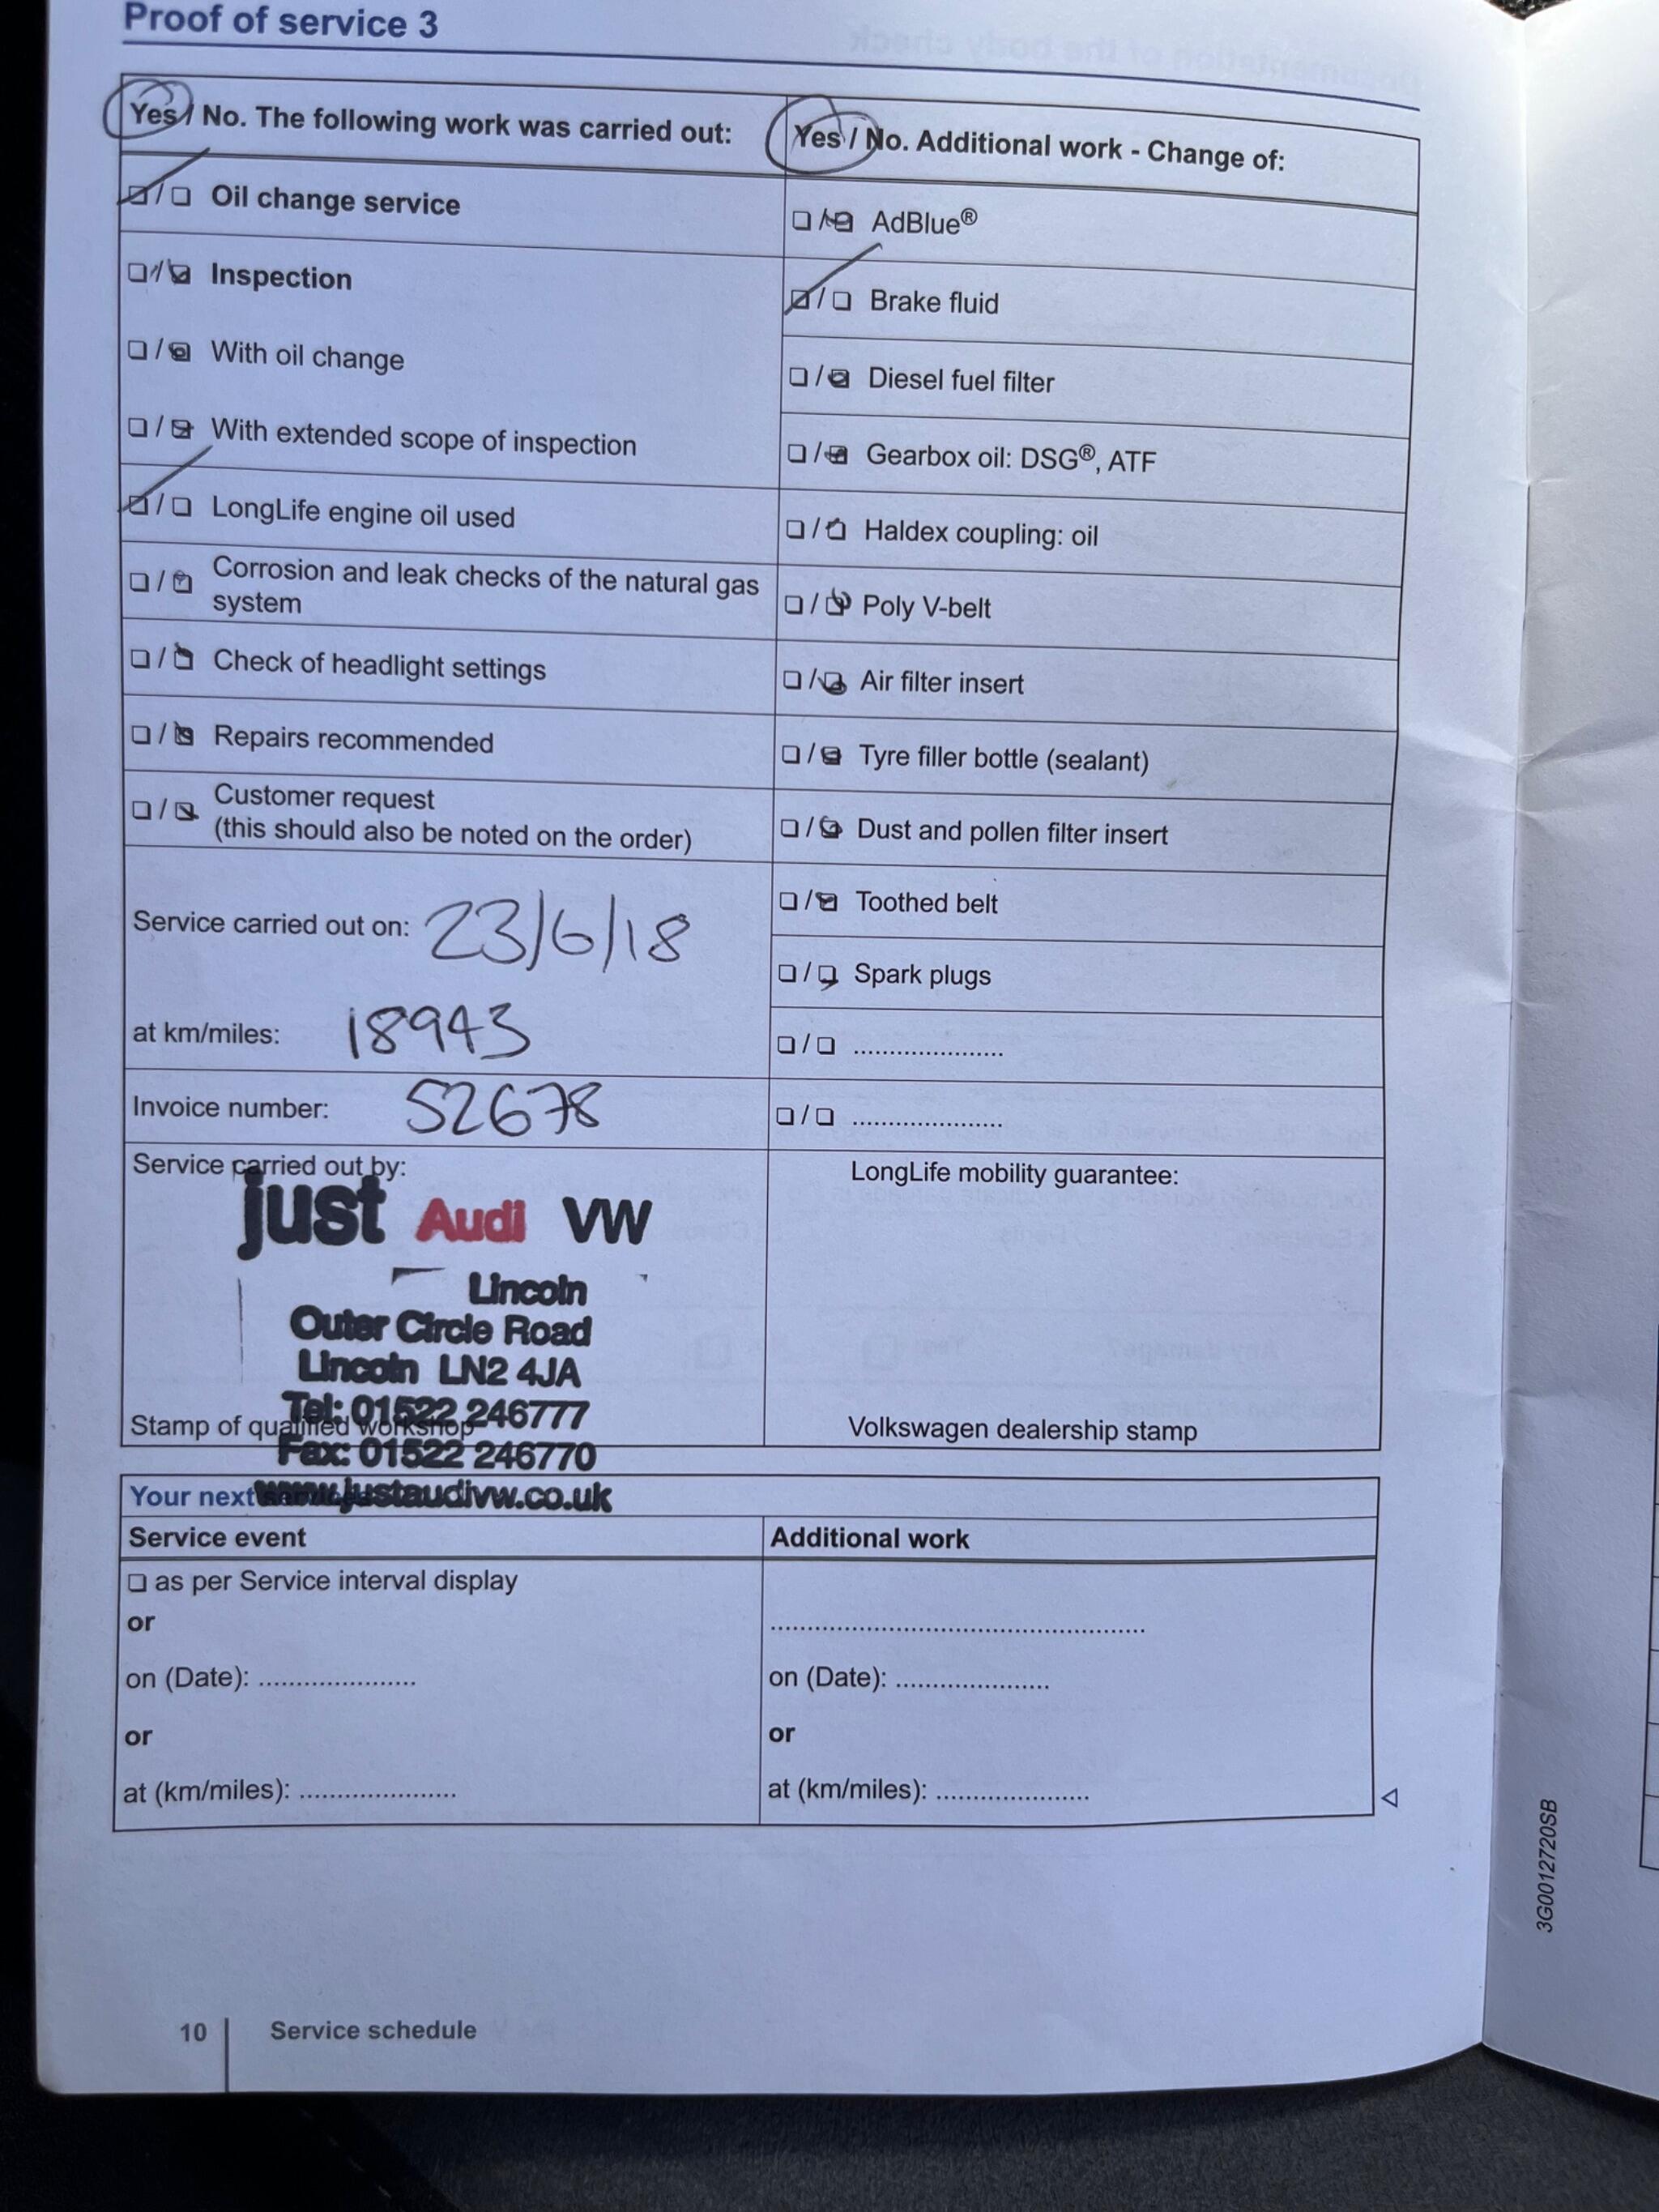 Proof of service 3
Yes / No. The following work was carried out:
Oil change service
Inspection
With oil change
With extended scope of inspection
LongLife engine oil used
Corrosion and leak checks of the natural gas
system
Check of headlight settings
Repairs recommended
Customer request
(this should also be noted on the order)
Service carried out on: 23/6/18
at km/miles: 18943
Invoice number: 52678
Service carried out by:
just Audi VW
Lincoln
Outer Circle Road
Lincoln LN2 4JA
Tel: 01522 246777
Stamp of qualified workshop
Fax: 01522 246770
www.justaudivw.co.uk
Yes / No. Additional work - Change of:
AdBlue®
Brake fluid
Diesel fuel filter
Gearbox oil: DSG®, ATF
Haldex coupling: oil
Poly V-belt
Air filter insert
Tyre filler bottle (sealant)
Dust and pollen filter insert
Toothed belt
Spark plugs
LongLife mobility guarantee:
Volkswagen dealership stamp
Your next
Service event
as per Service interval display
or
on (Date): ......................
or
at (km/miles): ......................
Additional work
....................................................
on (Date): ......................
or
at (km/miles): ......................
10 Service schedule
3G0012720SB